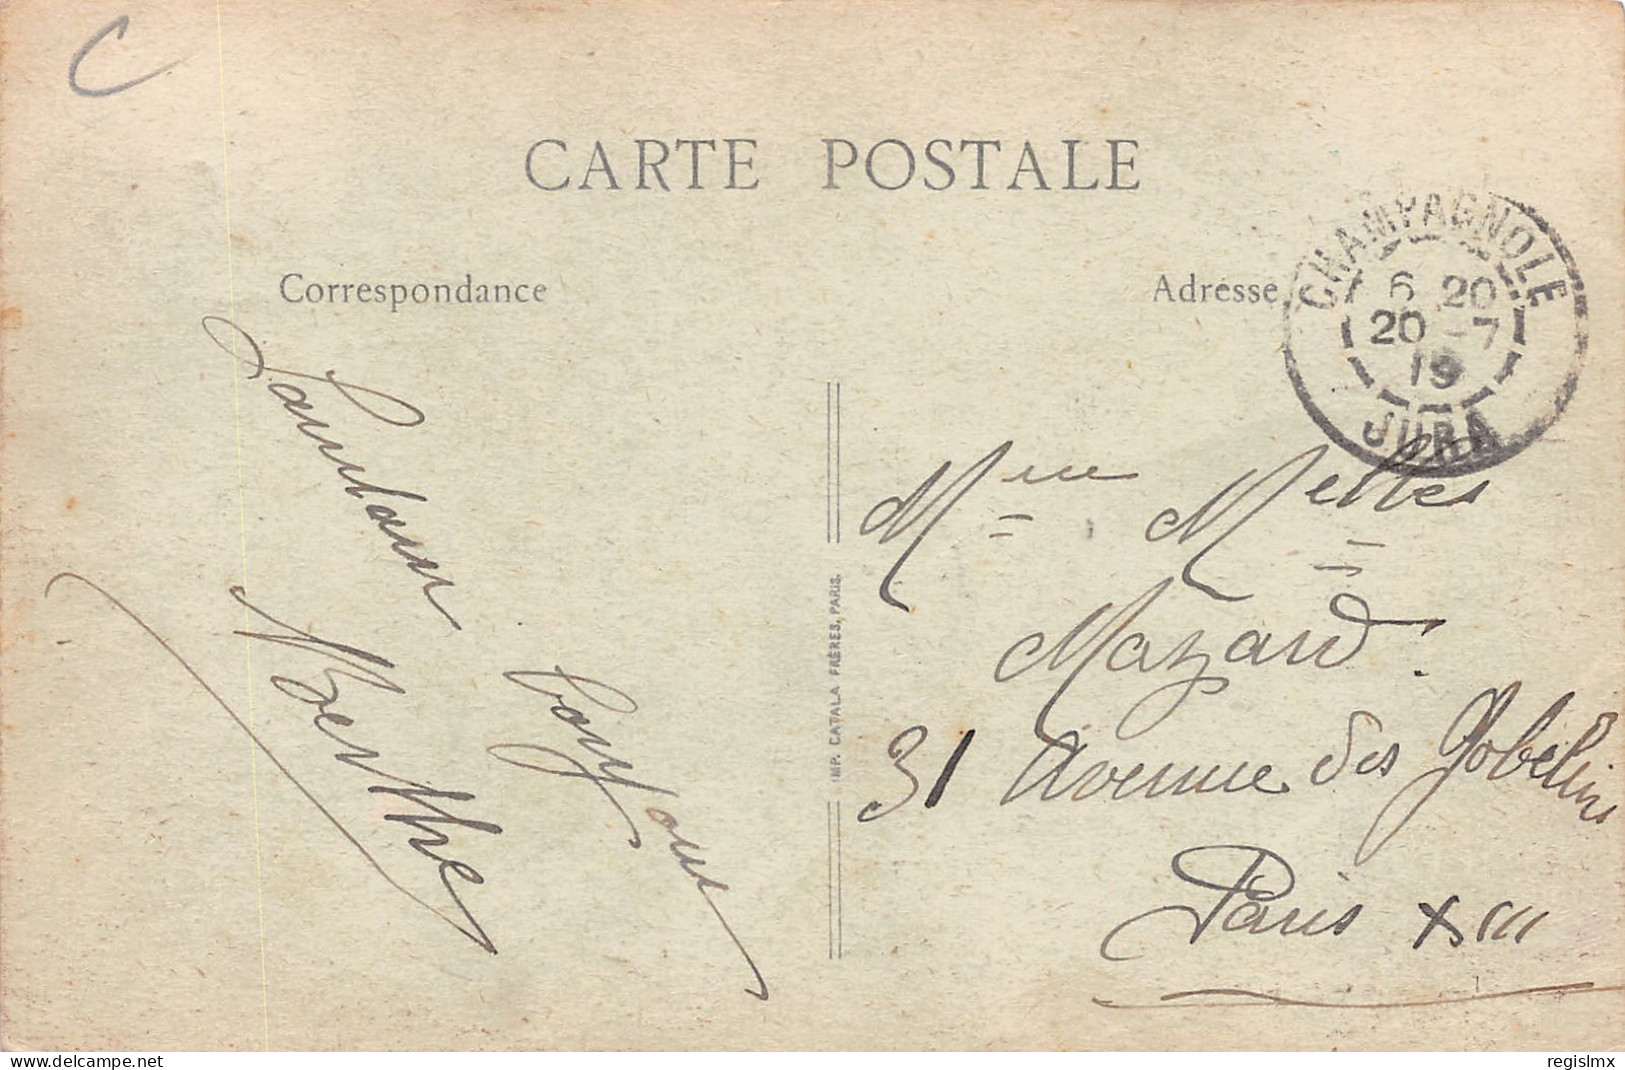 C
CARTE POSTALE
Correspondance
Adresse
CHAMPAGNOLE
6 20
20 -7
19
JURA
bonjour
Berthe
IMP. CATALA FRÈRES, PARIS.
Mme Melles
Mazard.
31 Avenue des Gobelins
Paris XIII
www.delcampe.net
regislmx